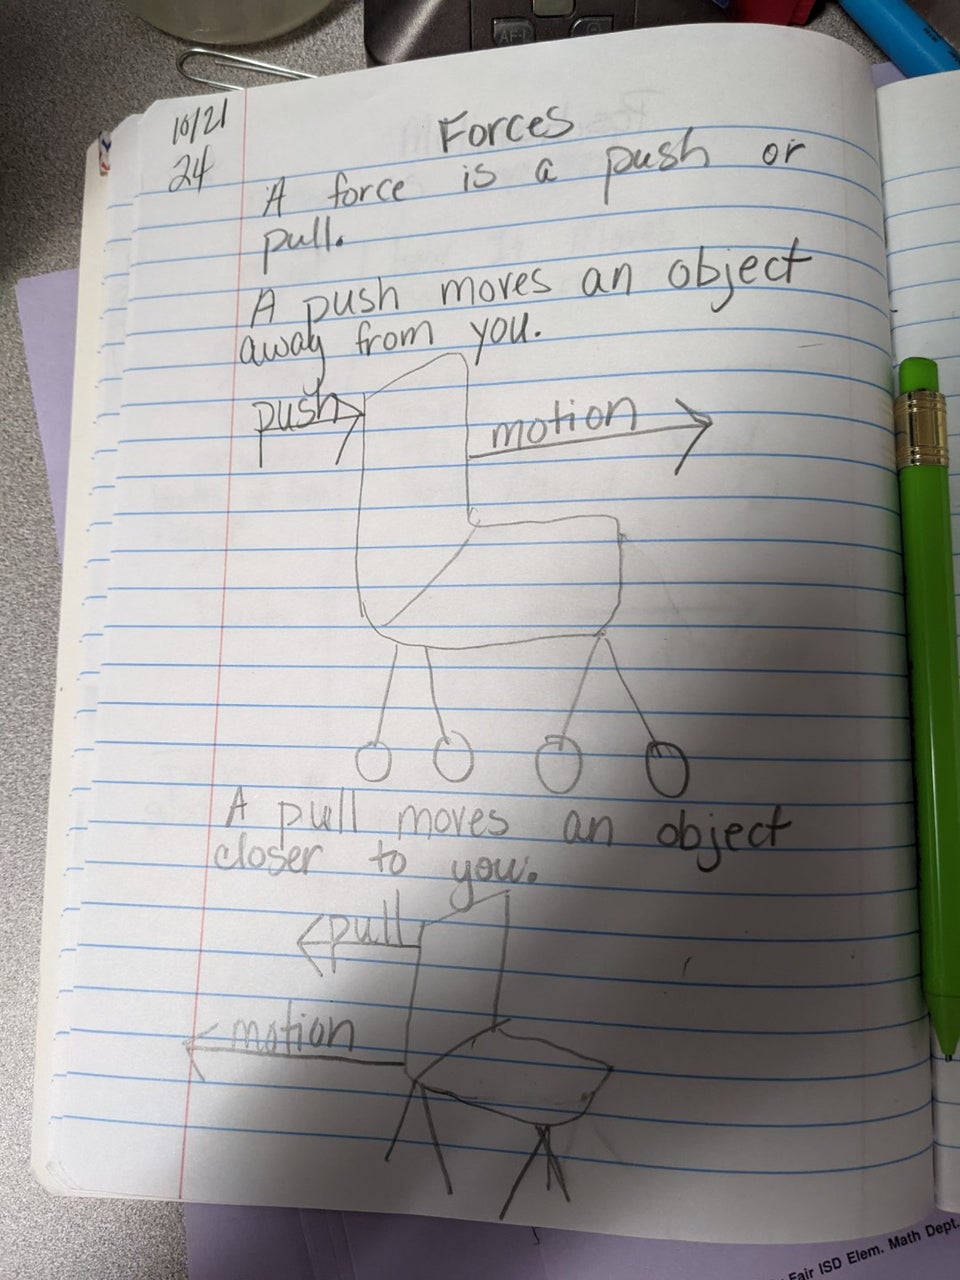 10/21
24
Forces
A force is a push or
pull.
A push moves an object
away from you.
push
motion
A pull moves an object
closer to you.
pull
motion
Fair ISD Elem. Math Dept.
AF-L